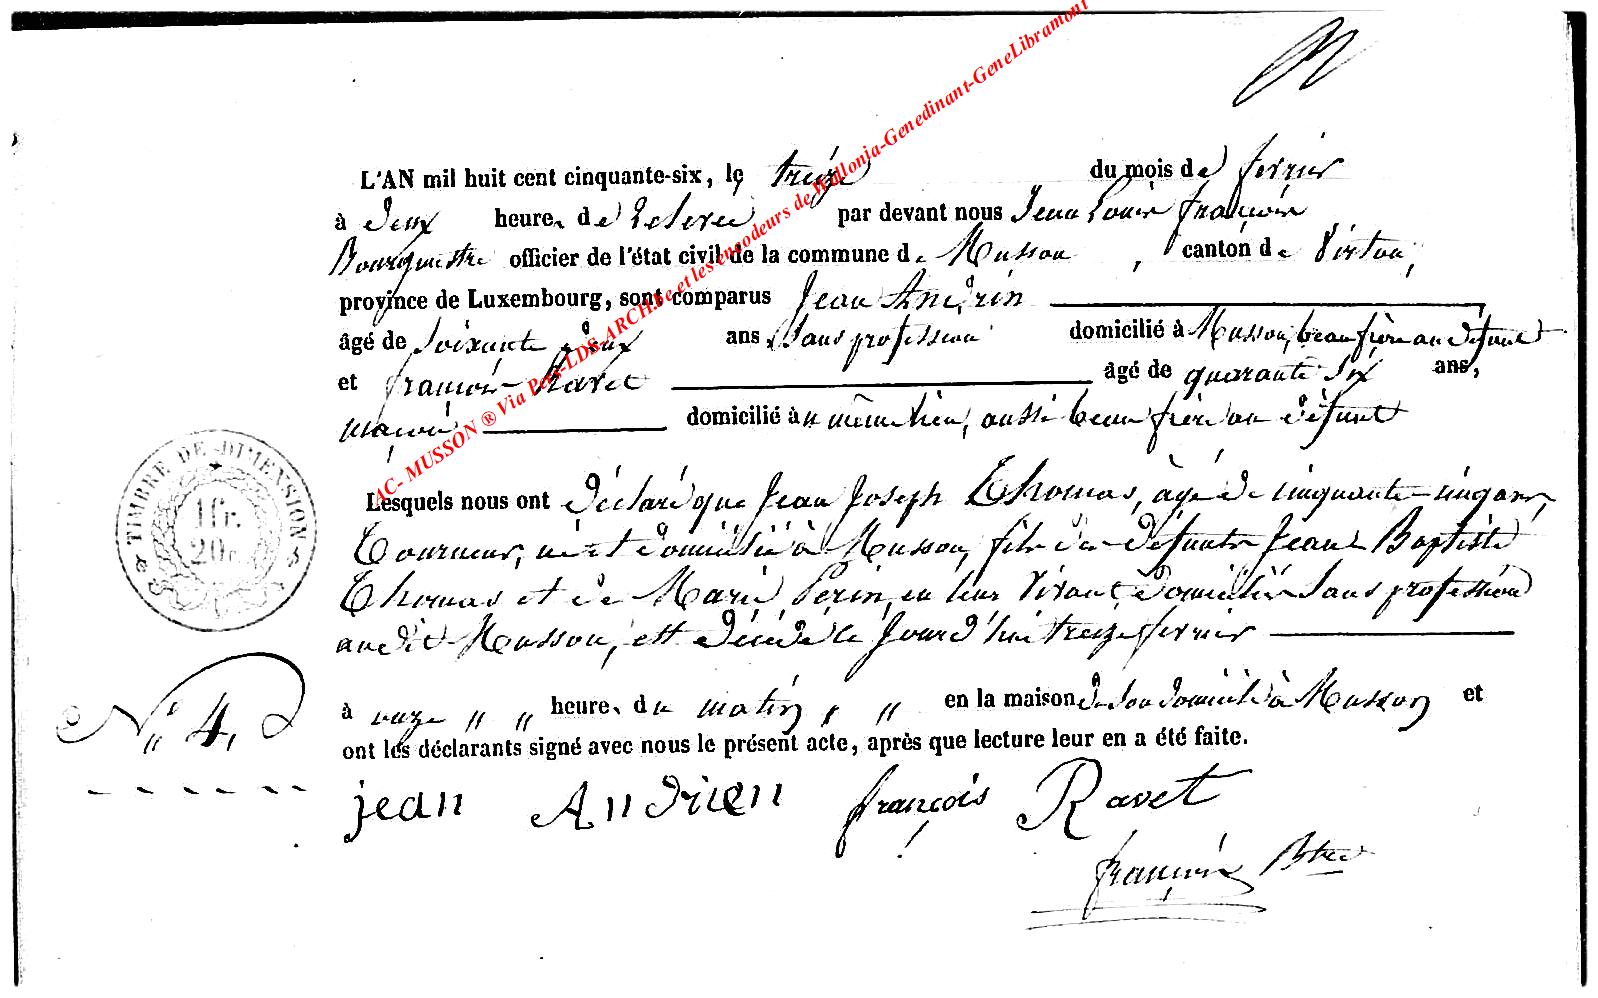 L'AN mil huit cent cinquante-six, le treize du mois de fevrier
à deux heures de relevée par devant nous Jean Louis françois
Bourgmestre officier de l'état civil de la commune de Musson, canton de Virton,
province de Luxembourg, sont comparus Jean Andrin
âgé de soixante deux ans, sans profession domicilié à Musson, beau frère au défunt
et françois Ravet âgé de quarante six ans,
maçon domicilié au même lieu, aussi beau frère au défunt
Lesquels nous ont déclaré que Jean Joseph Thomas, âgé de cinquante-cinq ans,
Tourneur, né et domicilié à Musson, fils des défunts Jean Baptiste
Thomas et de Marie Perin, en leur vivant domiciliés sans profession
audit Musson, est décédé le jourd'hui treize fevrier
à onze " " heures du matin " " en la maison de son domicile à Musson et
ont les déclarants signé avec nous le présent acte, après que lecture leur en a été faite.
jean Andrien françois Ravet
françois Btre
TIMBRE DE DIMENSION
1 fr.
20c.
N° 4.
AC- MUSSON ® Via Pers-LDS-ARCHive et les encodeurs de Wallonia-Genedinant-GeneLibramont